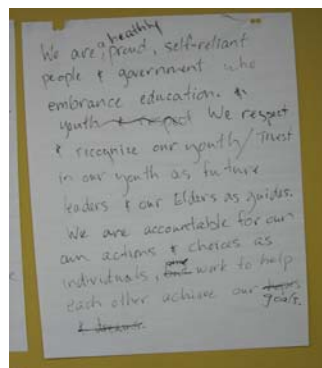 We are a healthy, proud, self-reliant
people & government who
embrance education. &
youth & respect We respect
& recognize our youth/Trust
in our youth as future
leaders & our Elders as guides.
We are accountable for our
own actions & choices as
individuals, and work to help
each other achieve our hopes
goals.
& dreams.